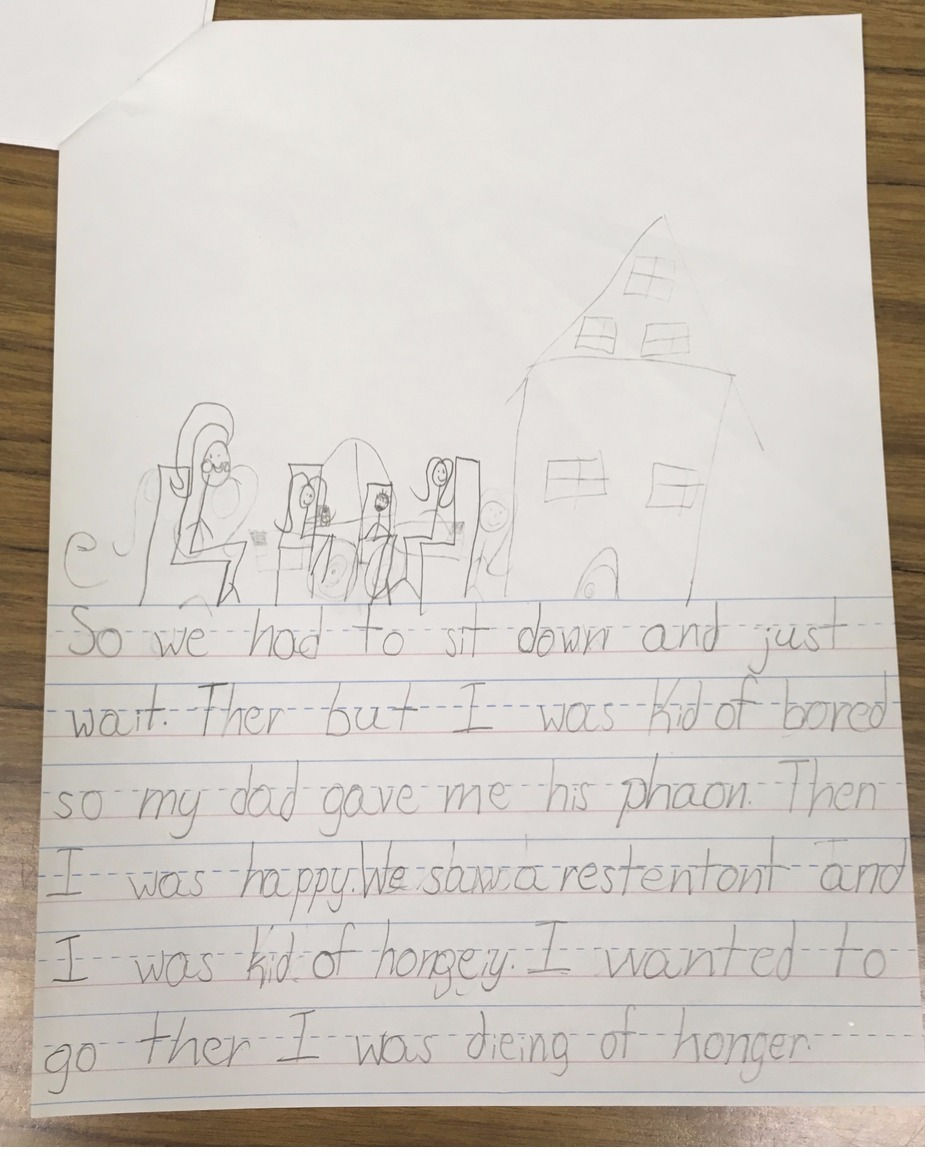 So we had to sit down and just
wait. Ther but I was kid of bored
so my dad gave me his phaon. Then
I was happy. We saw a restentont and
I was kid of hongey. I wanted to
go ther I was dieing of honger.